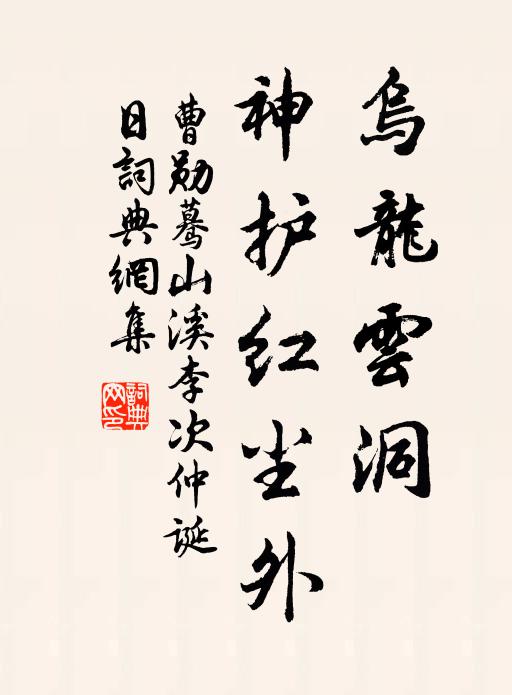 烏龍雲洞
神护红尘外
曹勋蓦山溪李次仲誕
日詞典網集
詞典
网印